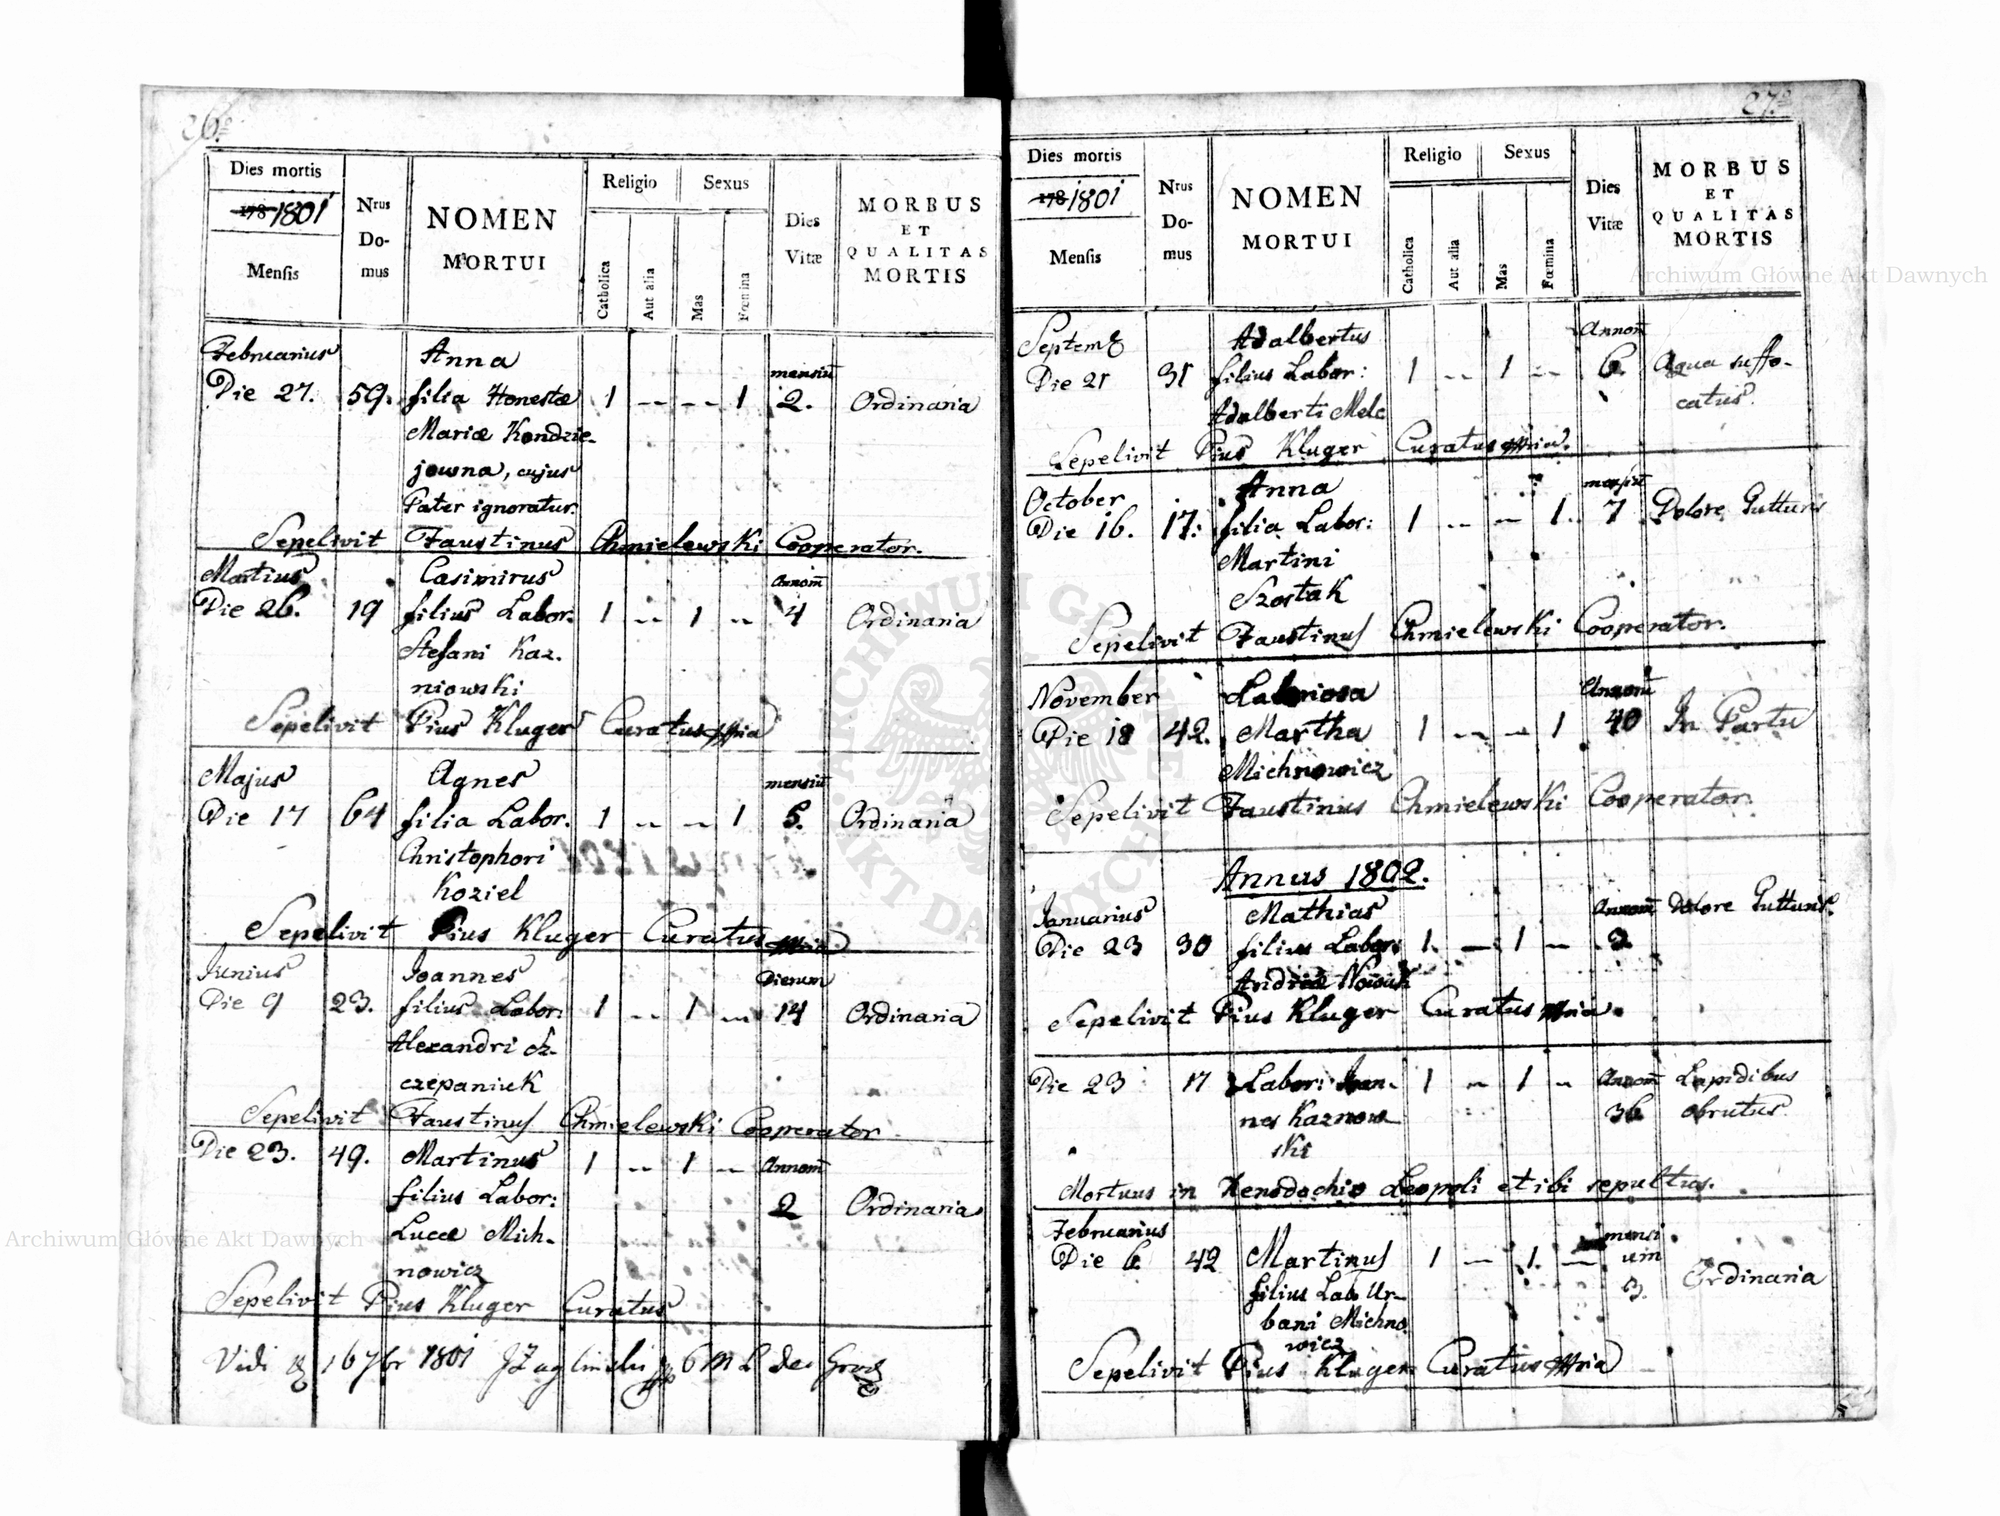 26.
Dies mortis
178 1801
Mensis
Nrus
Do-
mus
NOMEN
MORTUI
Religio
Sexus
Catholica
Aut alia
Mas
Fœmina
Dies
Vitæ
MORBUS
ET
QUALITAS
MORTIS
Februarius Anna
mensiū
Die 27. 59. filia Honestæ 1 -- -- 1 2. Ordinaria
Mariæ Kondzie-
jowna, cujus
Pater ignoratur.
Sepelivit Faustinus Chmielewski Cooperator.
Martius Casimirus Annom̄
Die 26. 19 filius Labor: 1 -- 1 -- 4 Ordinaria
Stefani Kaz-
niowski
Sepelivit Pius Kluger Curatus mpria
Majus Agnes mensiū
Die 17 64 filia Labor. 1 -- -- 1 5. Ordinaria
Christophori
Koziel
Sepelivit Pius Kluger Curatus mpria
Junius Joannes Dierum
Die 9 23. filius Labor: 1 -- 1 -- 14 Ordinaria
Alexandri
czepaniuk
Sepelivit Faustinus Chmielewski Cooperator
Die 23. 49. Martinus 1 -- 1 -- Annom̄
filius Labor: 2 Ordinaria
Lucæ Mich-
nowicz
Sepelivit Pius Kluger Curatus
Vidi 16 7br 1801
27.
Dies mortis
178 1801
Mensis
Nrus
Do-
mus
NOMEN
MORTUI
Religio
Sexus
Catholica
Aut alia
Mas
Fœmina
Dies
Vitæ
MORBUS
ET
QUALITAS
MORTIS
Septemb Adalbertus Annom̄
Die 21 31 filius Labor: 1 -- 1 -- 6. Aqua suffo-
Adalberti Melc catus.
Sepelivit Pius Kluger Curatus mpria.
October Anna mensiū
Die 16. 17: filia Labor: 1 -- -- 1. 7 Dolore Gutturis
Martini
Szostak
Sepelivit Faustinus Chmielewski Cooperator.
November Laboriosa Annom̄
Die 18 42. Martha 1 -- -- 1 40 In Partu
Michnowicz
Sepelivit Faustinus Chmielewski Cooperator.
Annus 1802.
Januarius Mathias Annom̄ Dolore Gutturis.
Die 23 30 filius Labor: 1. -- 1 -- 2
Andreæ Nowak
Sepelivit Pius Kluger Curatus mpria.
Die 23 17 Labor: Joan- 1 -- 1 -- Annom̄ Lapidibus
nes Kaznow 36 obrutus
ski
Mortuus in Xenodochio Leopoli et ibi sepultus.
Februarius mensi
Die 6 42 Martinus 1 -- 1. -- um
filius Lab Ur- 3. Ordinaria
bani Michno
wicz
Sepelivit Pius Kluger Curatus mpria
Archiwum Główne Akt Dawnych
Archiwum Główne Akt Dawnych
ARCHIWUM GŁÓWNE AKT DAWNYCH